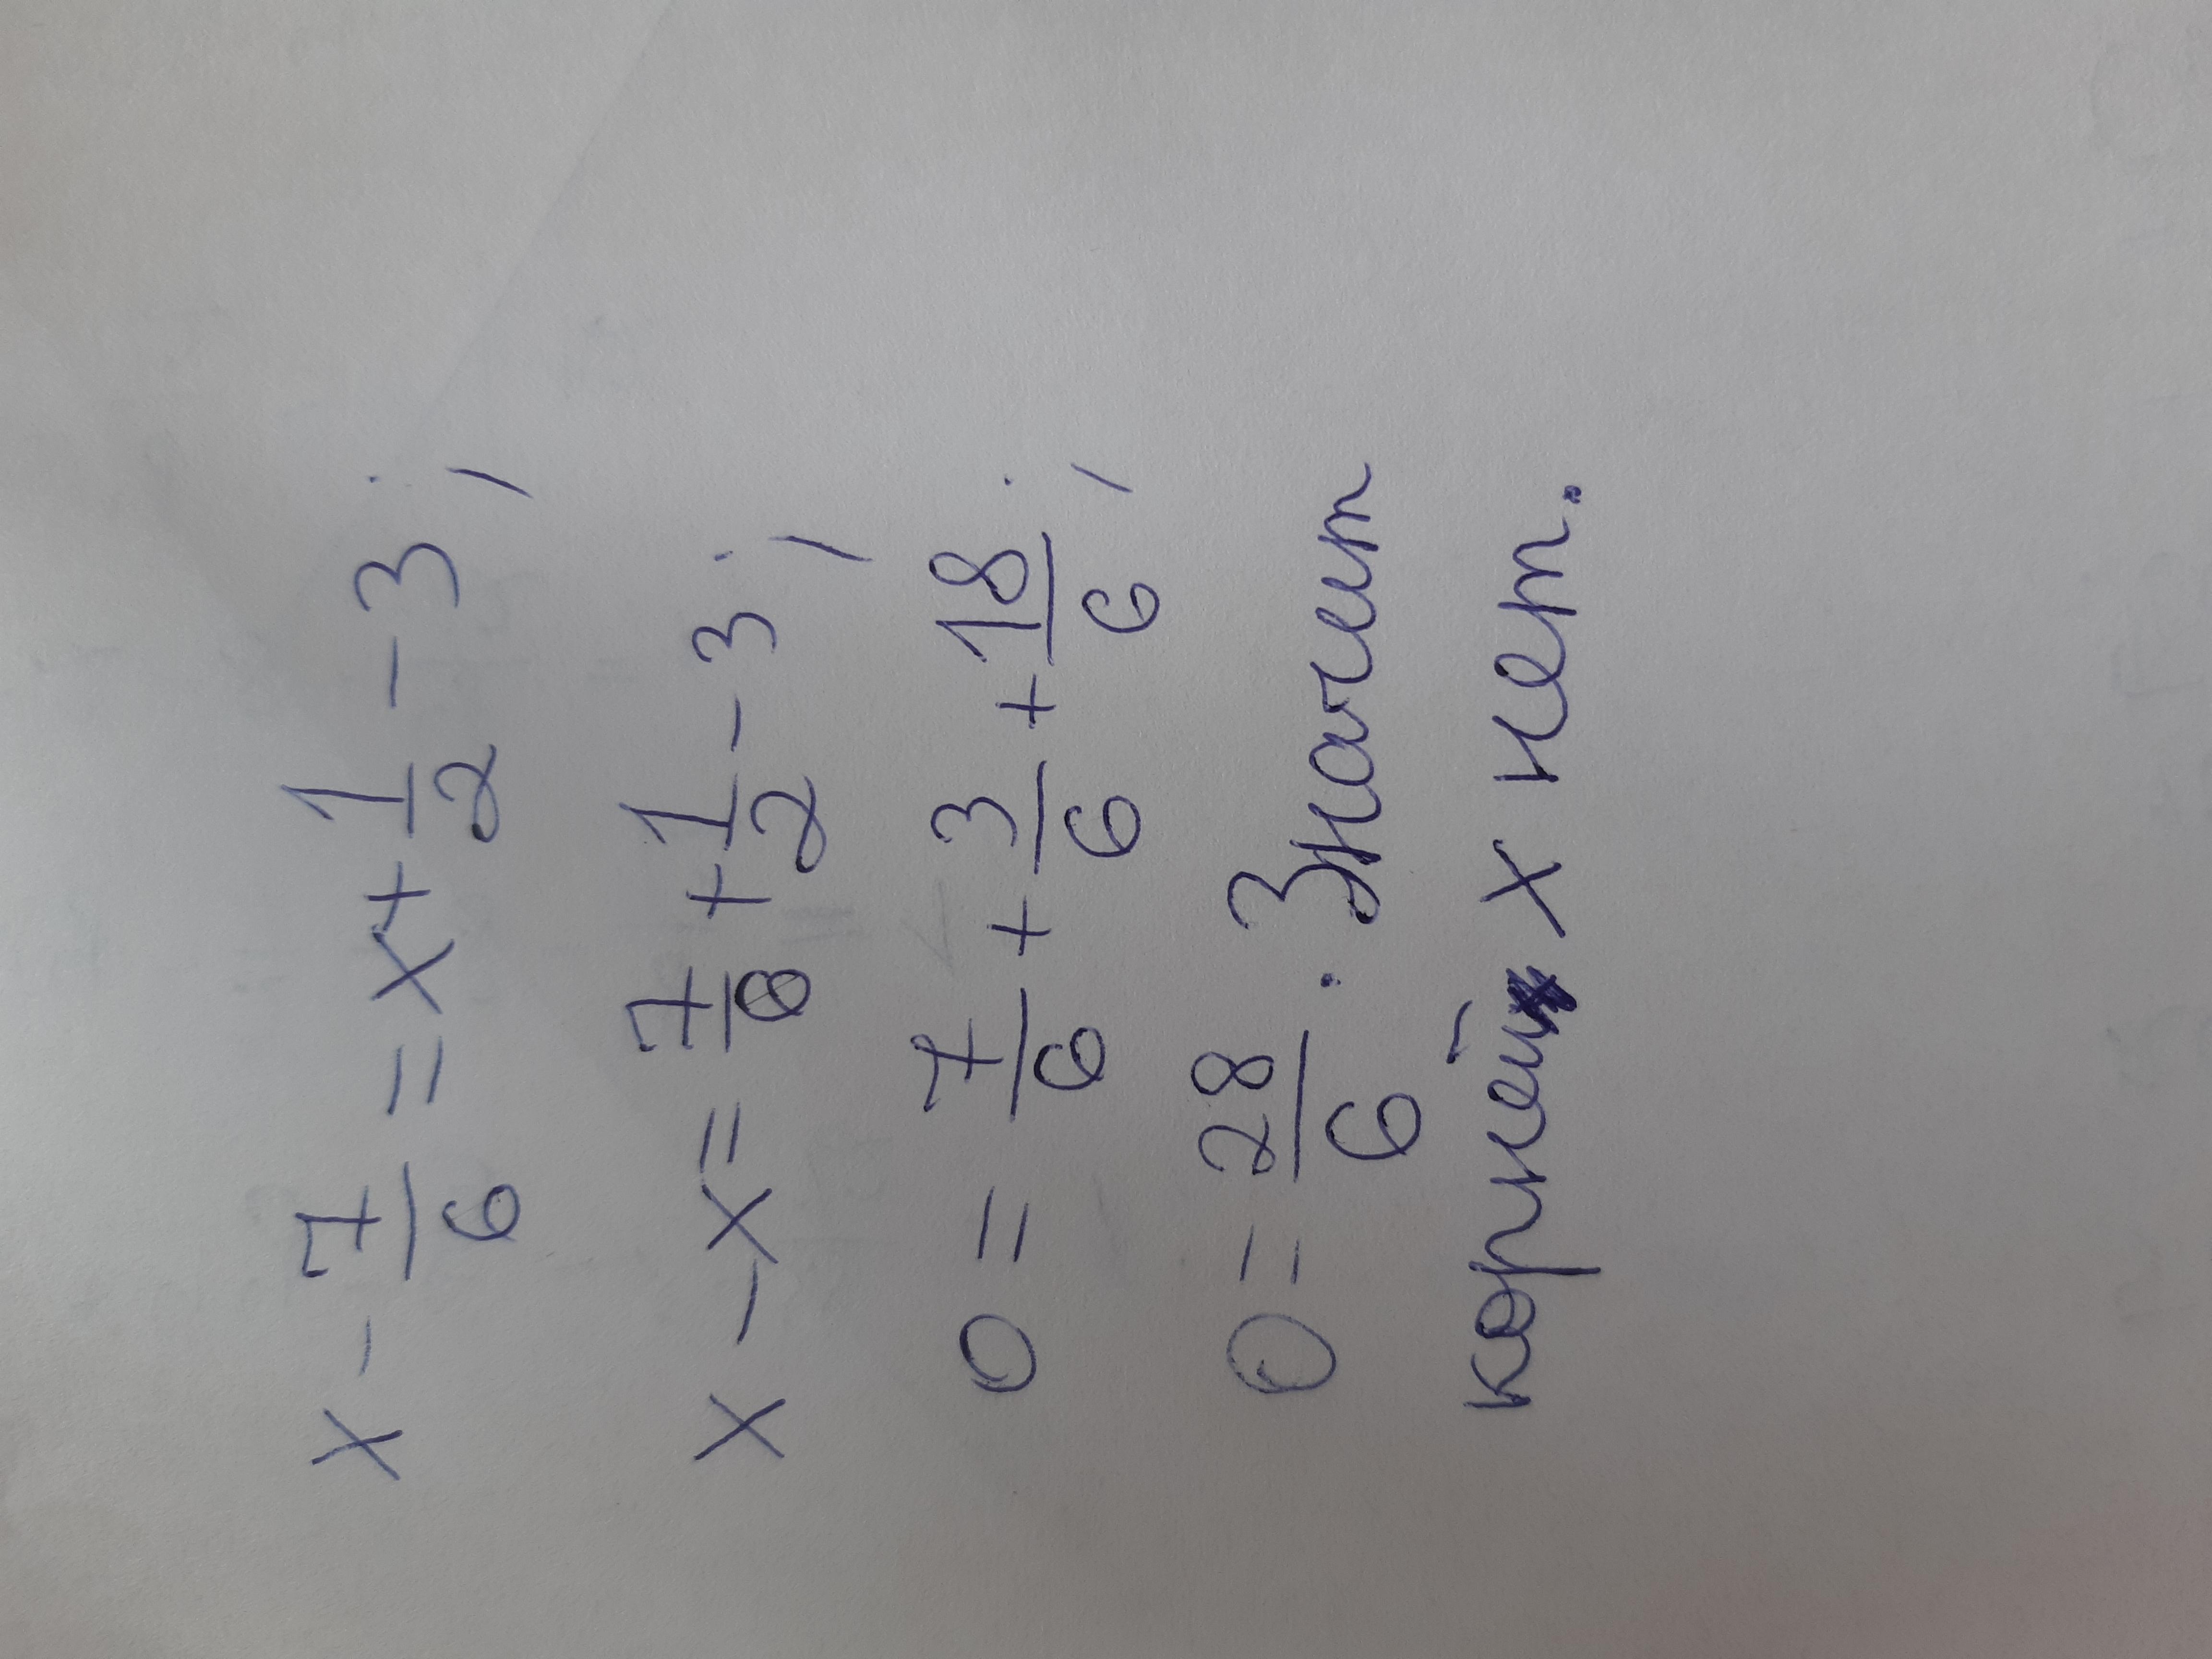 x - 7/6 = x + 1/2 - 3;
x - x = 7/6 + 1/2 - 3;
0 = 7/6 + 3/6 + 18/6;
0 = 28/6. Значит
корней x нет.